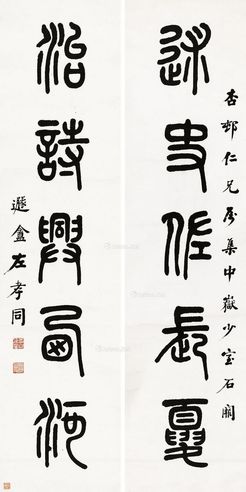 杏邨仁兄屬集中嶽少室石闕
述史佐長夏
治詩興西河
遯盦左孝同